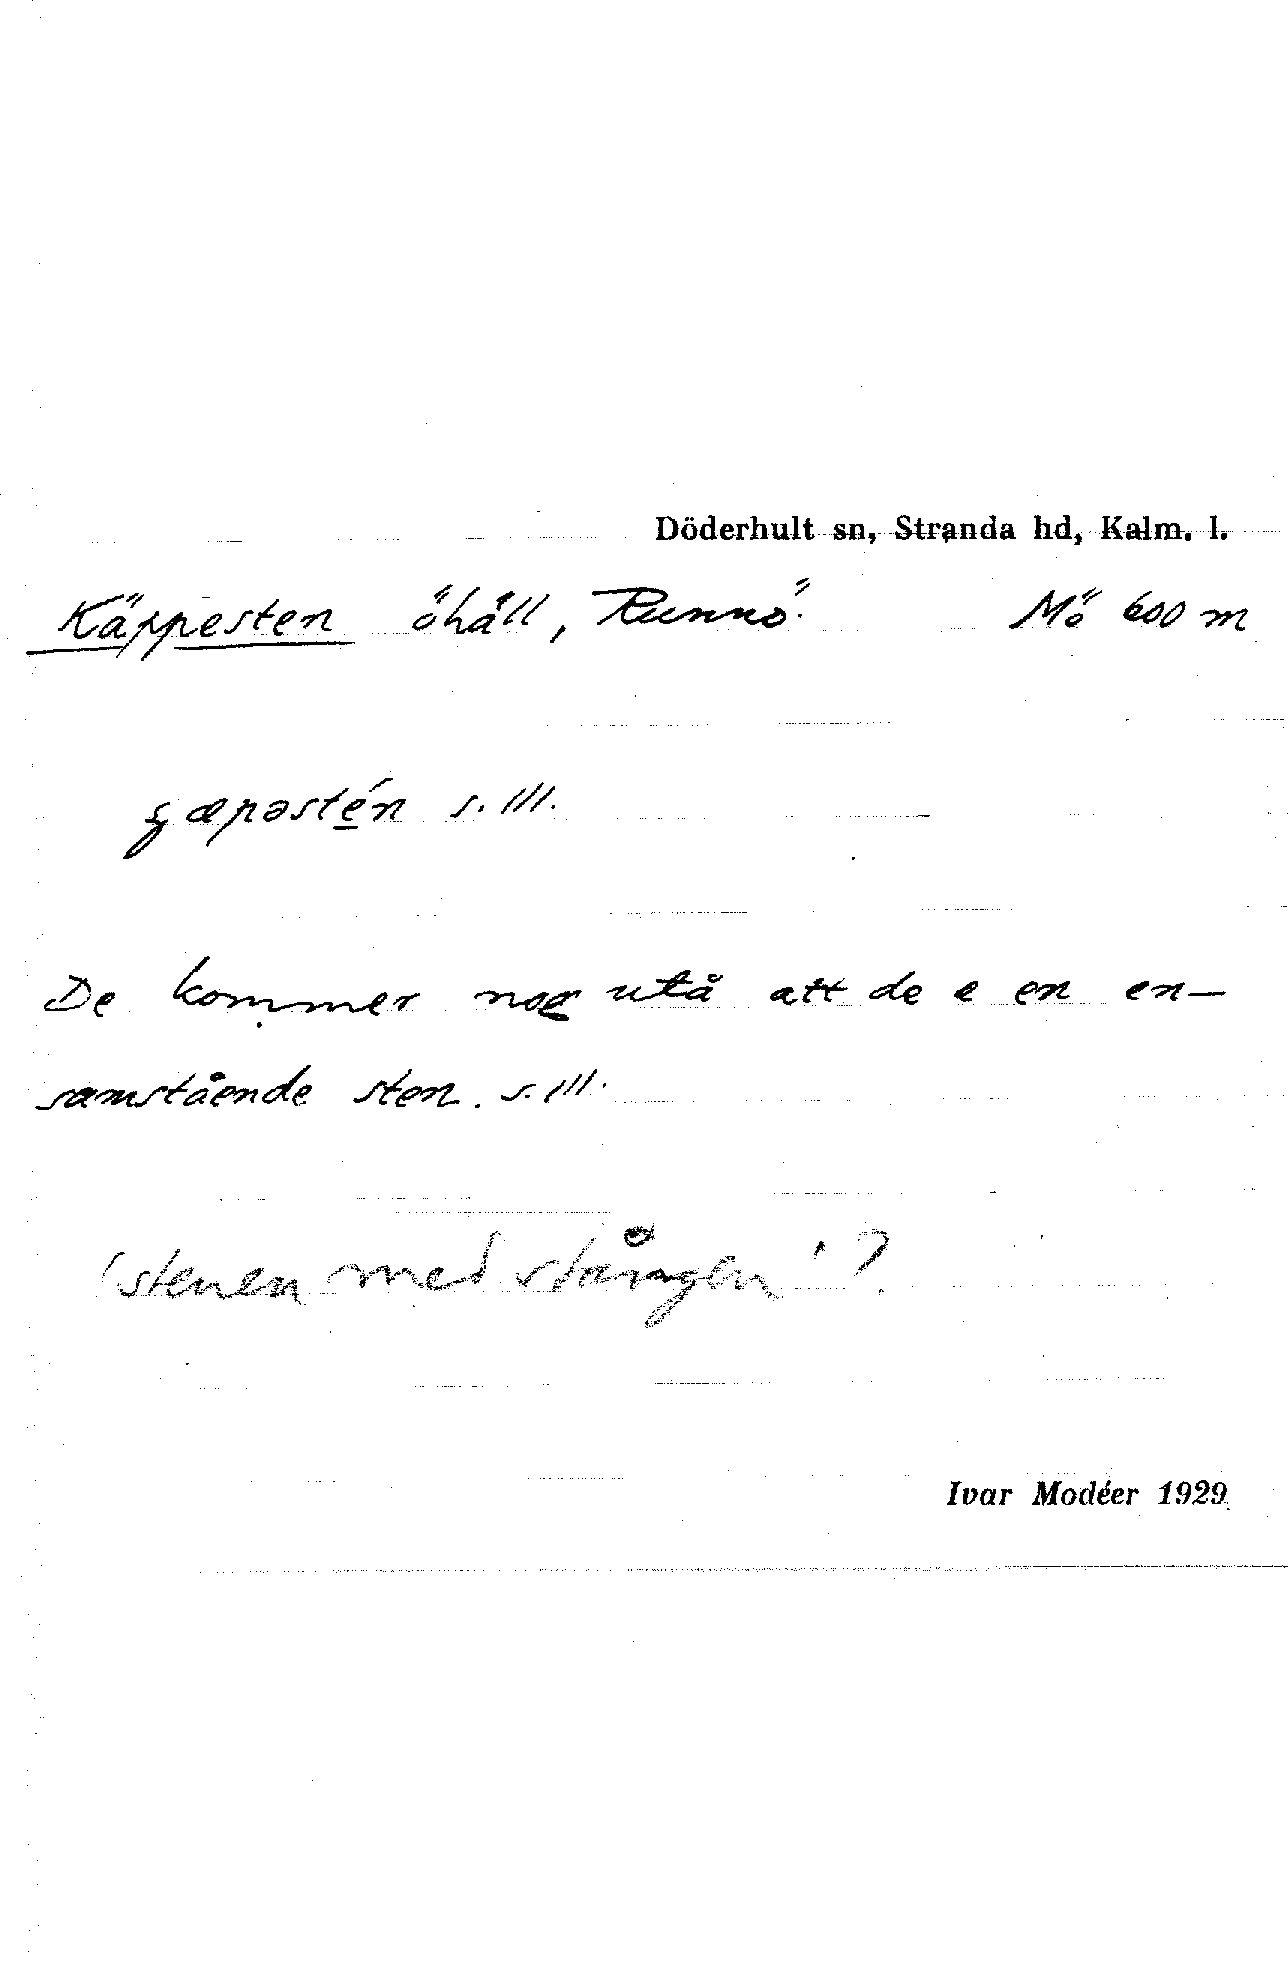 Döderhult sn, Stranda hd, Kalm. l.
Käppesten öhäll, Runnö. Mö 600 m
s. III.
De kommer nog utå att de e en en-
samstående sten. s. III.
'stenen med stången'?
Ivar Modéer 1929